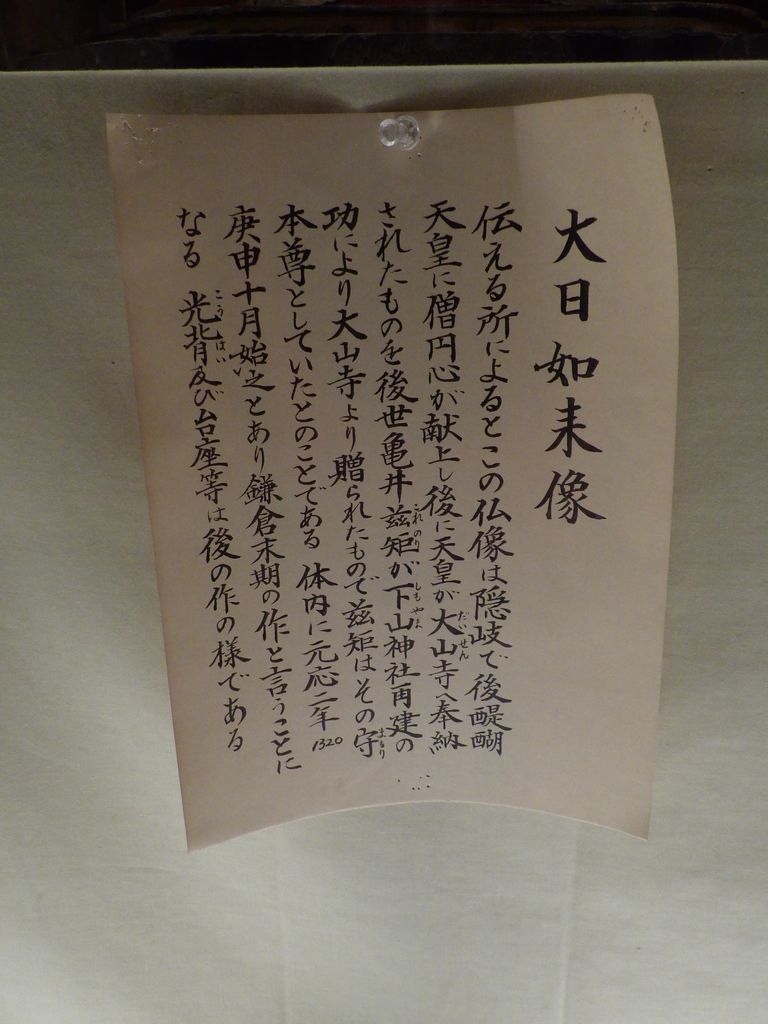 大日如来像
伝える所によるとこの仏像は隠岐で後醍醐
天皇に僧円心が献上し後に天皇が大山寺へ奉納
だいせん
されたものを後世亀井茲矩が下山神社再建の
これのり
しもやま
功により大山寺より贈られたもので茲矩はその守
まもり
本尊としていたとのことである 体内に元応二年
1320
庚申十月始之とあり鎌倉末期の作と言うことに
なる 光背及び台座等は後の作の様である
こうはい